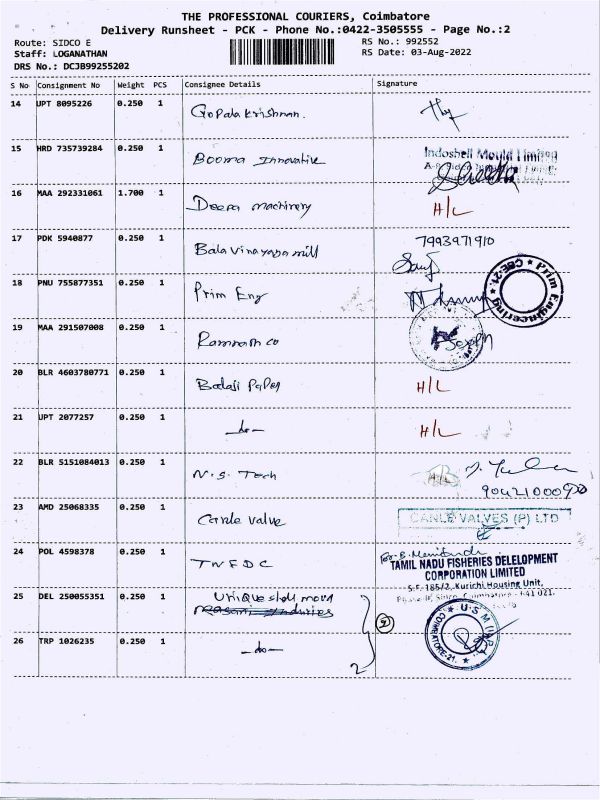 THE PROFESSIONAL COURIERS, Coimbatore
Delivery Runsheet - PCK - Phone No.:0422-3505555 - Page No.:2
Route: SIDCO E
RS No.: 992552
Staff: LOGANATHAN
RS Date: 03-Aug-2022
DRS No.: DCJB99255202
S No Consignment No Weight PCS Consignee Details Signature
14 UPT 8095226 0.250 1 Gopala krishnan.
15 HRD 735739284 0.250 1 Booma Innovative
Indoshell Mould Limited
16 MAA 292331061 1.700 1 Deepa machinery H/L
17 PDK 5940877 0.250 1 Bala vinayaga mill 7993971910
18 PNU 755877351 0.250 1 Prim Eng
Prim Engineering CBE-21.
19 MAA 291507008 0.250 1 Ramnath co
20 BLR 4603780771 0.250 1 Balaji Paper H/L
21 UPT 2077257 0.250 1 -do- H/L
22 BLR 5151084013 0.250 1 N.S. Tech
9042100090
23 AMD 25068335 0.250 1 Canle valve CANLE VALVES (P) LTD
24 POL 4598378 0.250 1 TNFDC
TAMIL NADU FISHERIES DELELOPMENT
CORPORATION LIMITED
S.F-185/2, Kurichi Housing Unit,
25 DEL 250055351 0.250 1 Unique shell mould
26 TRP 1026235 0.250 1 -do- 2
COIMBATORE-21.